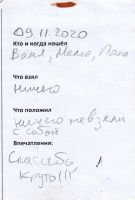 09.11.2020
Кто и когда нашёл
Ваня, Мама, Папа
Что взял
Ничего
Что положил
ничего не взяли
с собой
Впечатления:
Спасибо
Круто!!!